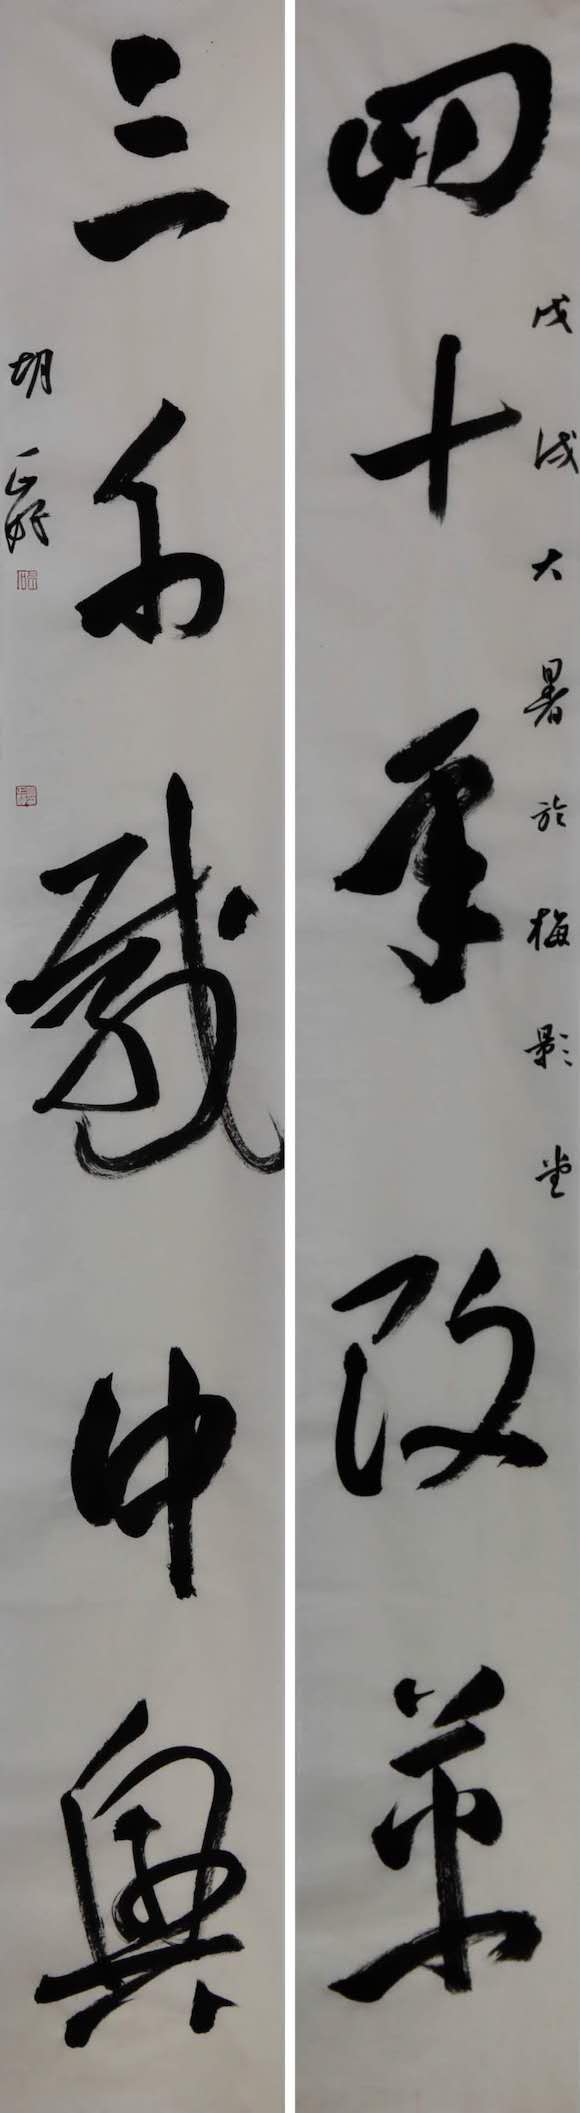 四十年改革
戊戌大暑於梅影堂
三千載中興
胡